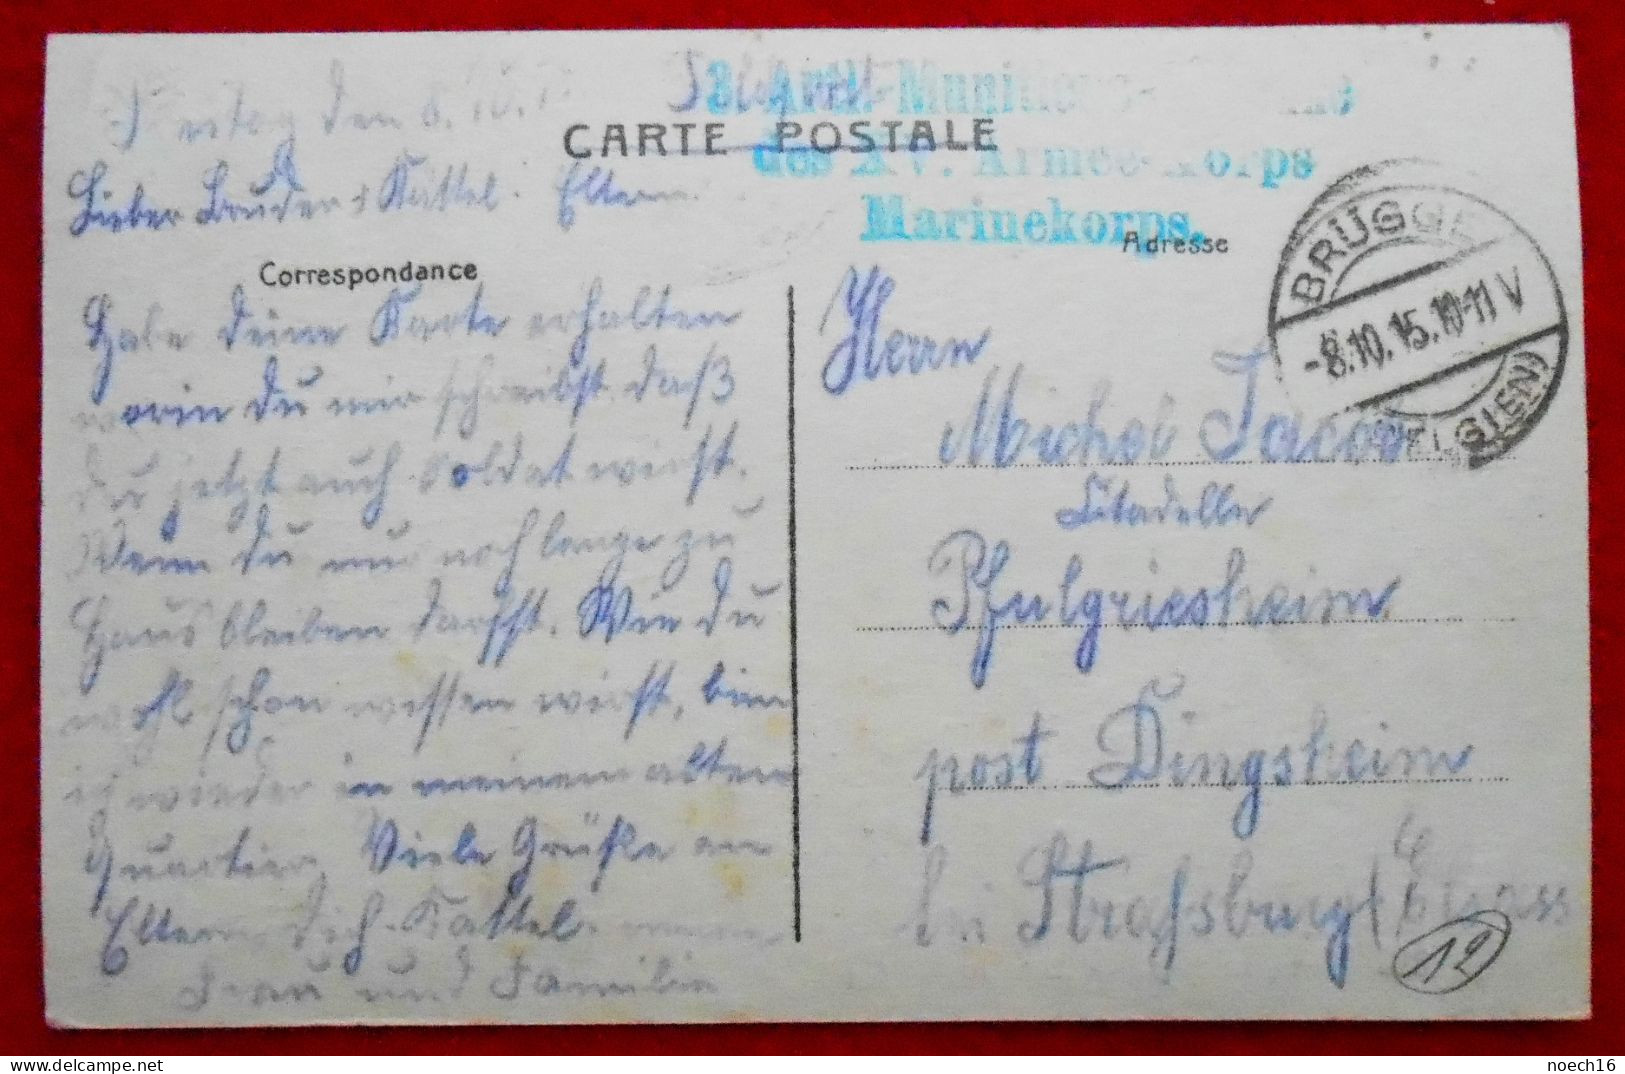 Freitag den 8. 10. 15
Feldpost
3. Artl.-Munitions-Kolonne
des XV. Armee-Korps
Marinekorps.
CARTE POSTALE
Lieber Bruder + Kättel. Eltern.
Correspondance
Adresse
BRÜGGE
-8.10.15.10-11 V
(BELGIEN)
Habe deine Karte erhalten
worin du mir schreibst daß
du jetzt auch Soldat wirst.
Wenn du nur noch lange zu
Haus bleiben darfst. Wie du
wohl schon wissen wirst, bin
ich wieder in meinem alten
Quartier. Viele Grüße an
Eltern, dich. Kättel. meine
Frau und Familie
Herrn
Michel Jacob
Pfulgriesheim
post Dingsheim
bei Straßburg (Elsass
12
noech16